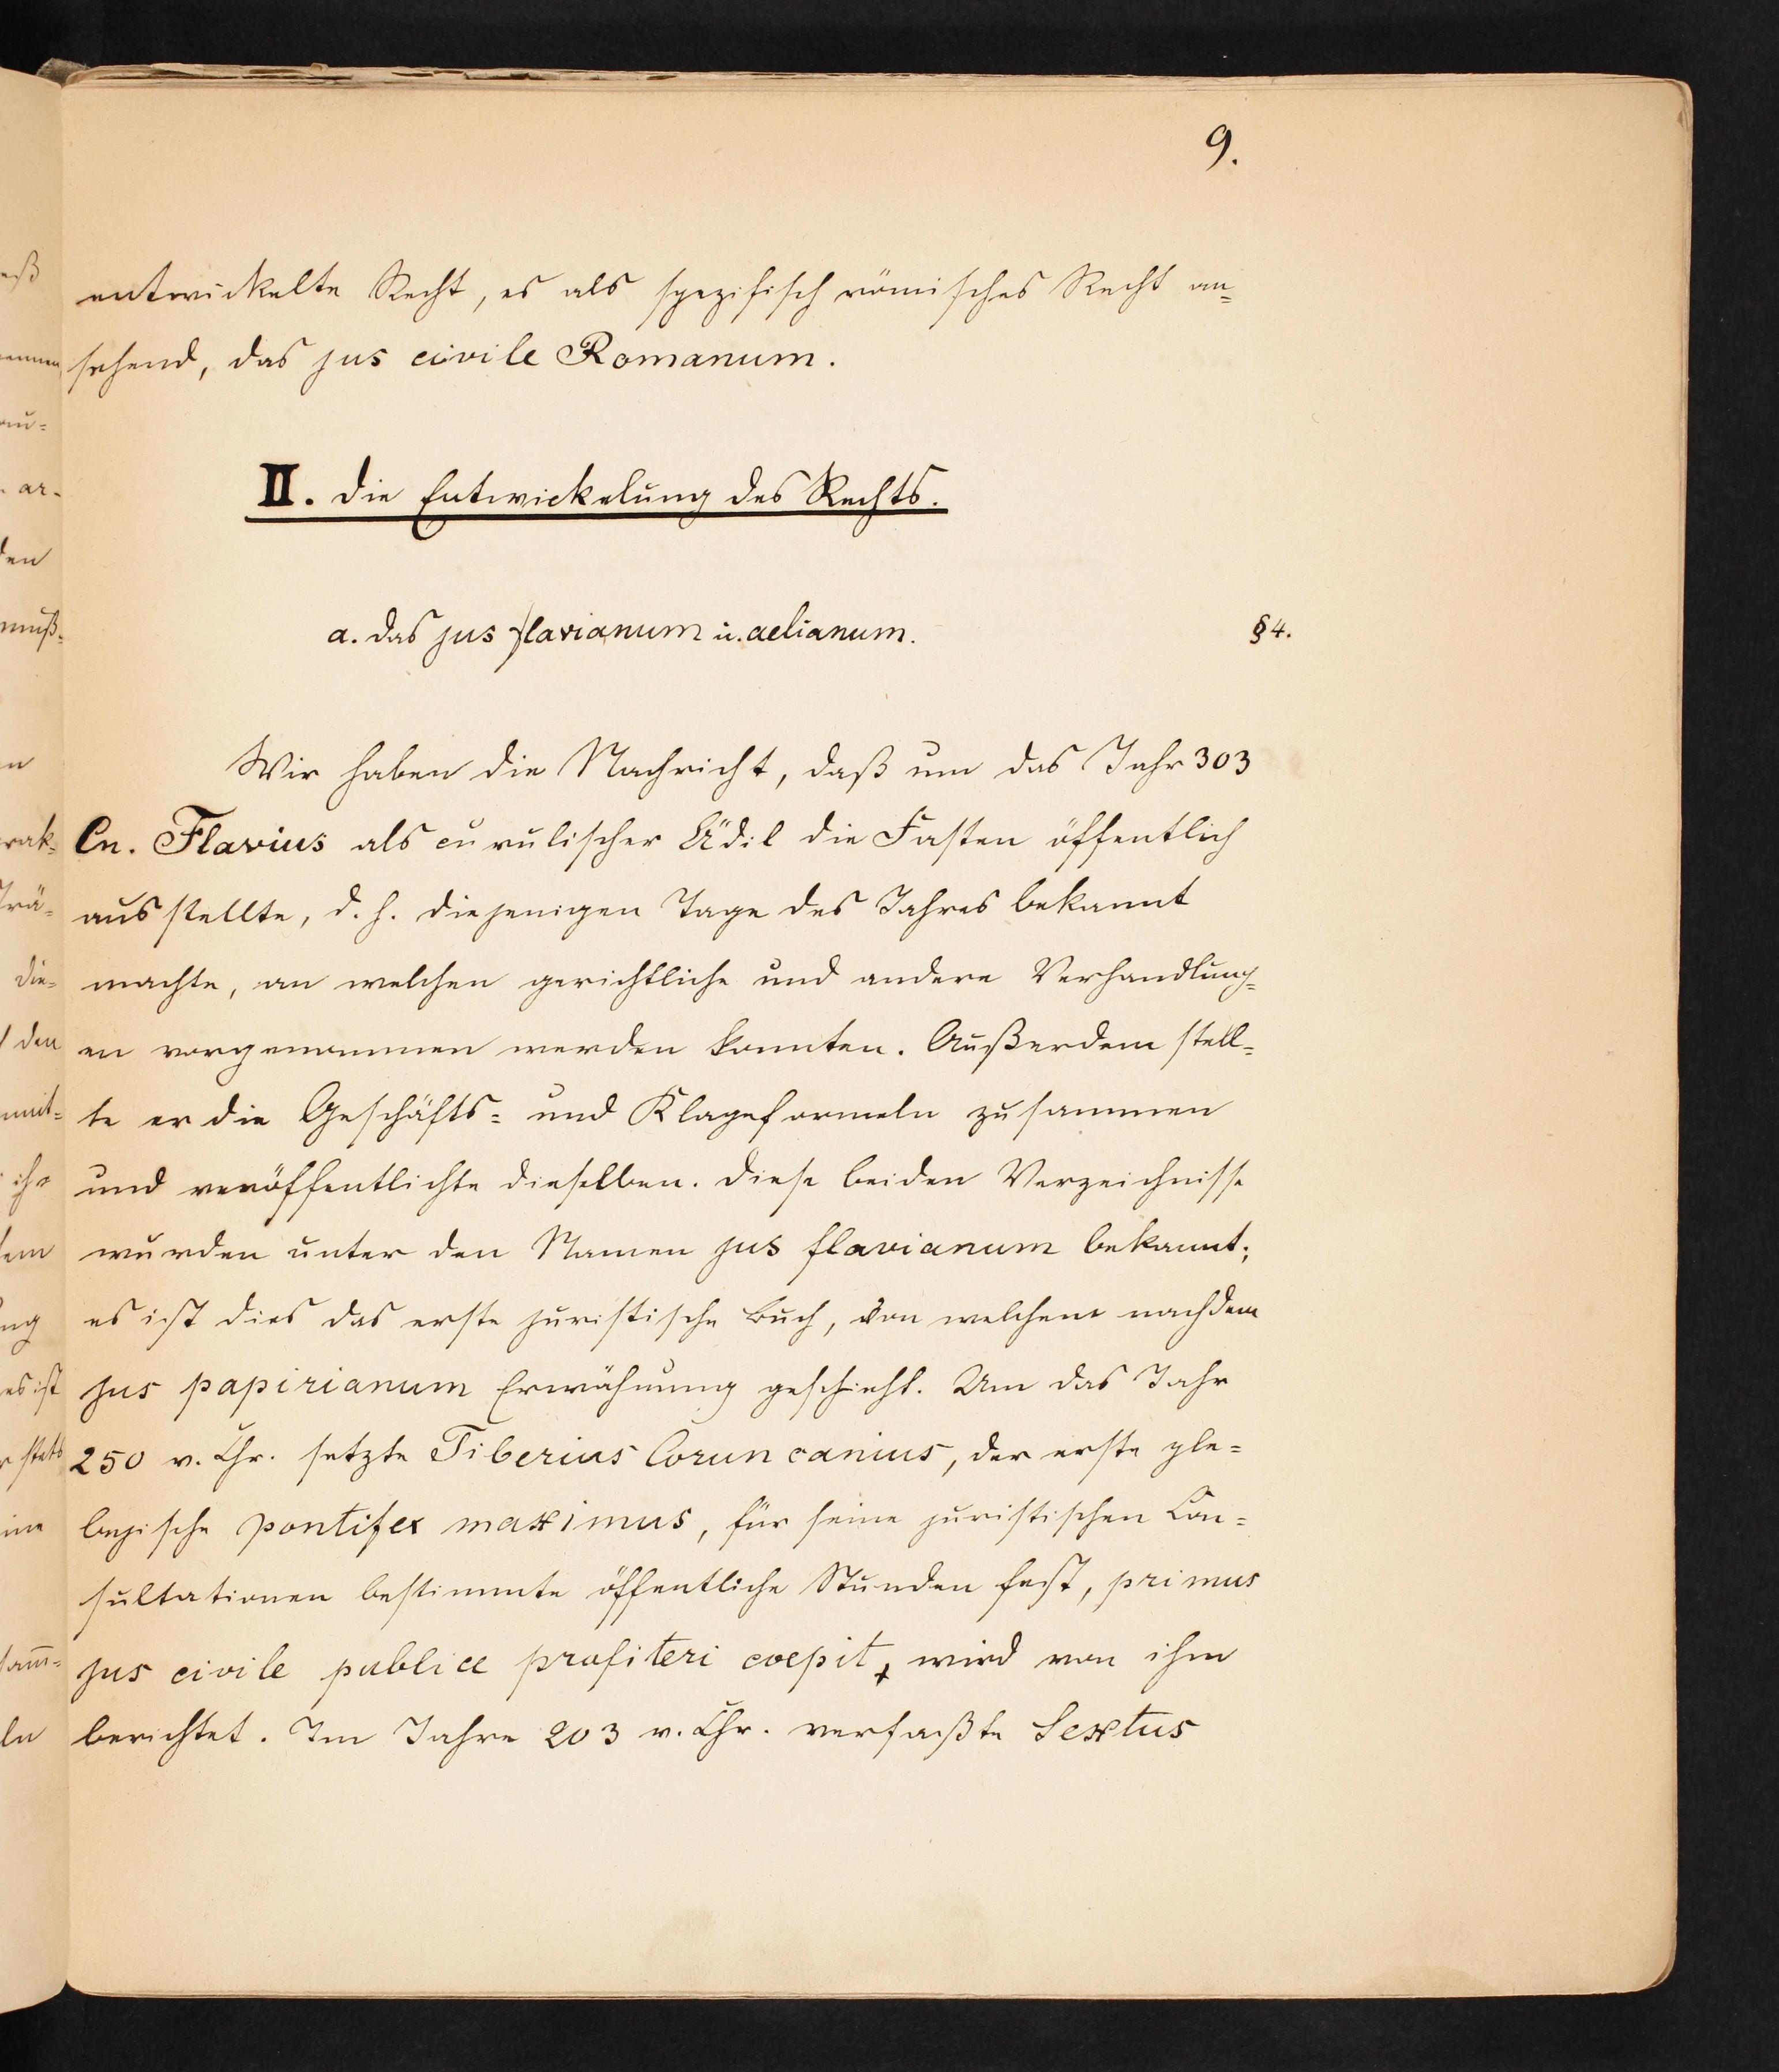 9.
entwickelte Recht, es als spezifisch römisches Recht an=
sehend, das jus civile Romanum.
II. Die Entwickelung des Rechts.
a. Das jus flavianum u. aelianum.
§ 4.
Wir haben die Nachricht, daß um das Jahr 303
Cn. Flavius als curulischer Ädil die Fasten öffentlich
ausstellte, d. h. diejenigen Tage des Jahres bekannt
machte, an welchen gerichtliche und andere Verhandlung=
en vorgenommen werden konnten. Außerdem stell=
te er die Geschäfts= und Klageformeln zusammen
und veröffentlichte dieselben. Diese beiden Verzeichnisse
wurden unter den Namen jus flavianum bekannt;
es ist dies das erste juristische Buch, von welchem nach dem
jus papirianum Erwähnung geschieht. Um das Jahr
250 v. Chr. setzte Tiberius Coruncanius, der erste ple=
bejische pontifex maximus, für seine juristischen Con=
sultationen bestimmte öffentliche Stunden fest, primus
jus civile publice profiteri coepit, wird von ihm
berichtet. Im Jahre 203 v. Chr. verfaßte Sextus